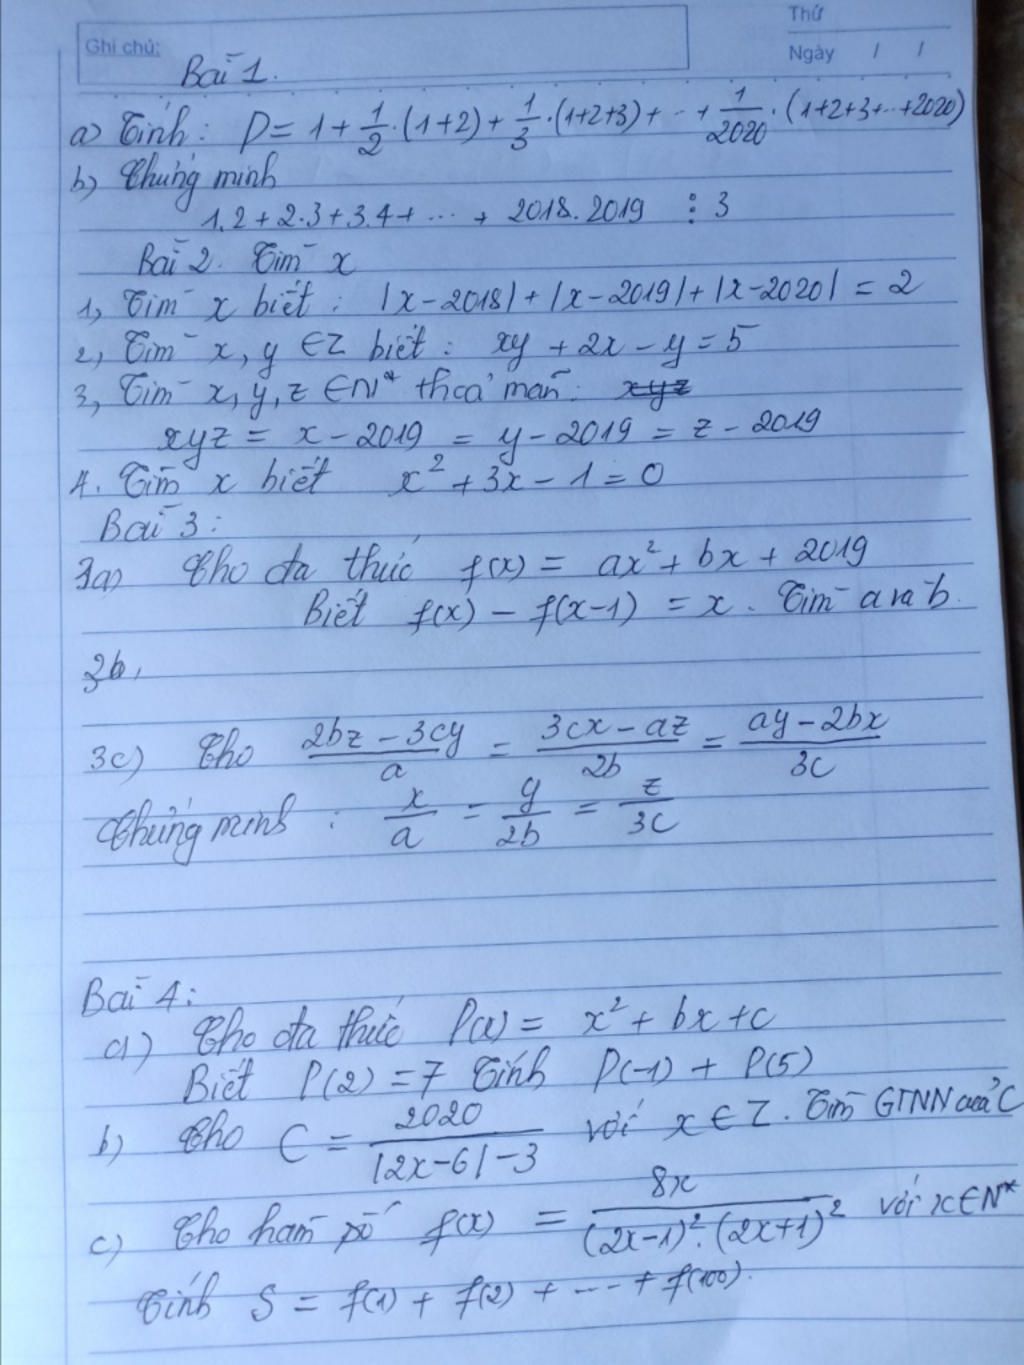 Thứ
Ghi chú:
Ngày / /
Bài 1.
a) Tính: P = 1 + 1/2 . (1+2) + 1/3 . (1+2+3) + ... + 1/2020 . (1+2+3+...+2020)
b) Chứng minh
1.2 + 2.3 + 3.4 + ... + 2018.2019 ⋮ 3
Bài 2. Tìm x
1, Tìm x biết : |x-2018| + |x-2019| + |x-2020| = 2
2, Tìm x, y ∈ Z biết : xy + 2x - y = 5
3, Tìm x, y, z ∈ N* thoả mãn: xyz
xyz = x - 2019 = y - 2019 = z - 2019
4. Tìm x biết x² + 3x - 1 = 0
Bài 3:
3a) Cho đa thức f(x) = ax² + bx + 2019
Biết f(x) - f(x-1) = x. Tìm a và b.
3b,
3c) Cho (2bz - 3cy)/a = (3cx - az)/2b = (ay - 2bx)/3c
Chứng minh : x/a = y/2b = z/3c
Bài 4:
a) Cho đa thức P(x) = x² + bx + c
Biết P(2) = 7 Tính P(-1) + P(5)
b) Cho C = 2020/(|2x-6| - 3) với x ∈ Z. Tìm GTNN của C
c) Cho hàm số f(x) = 8x/((2x-1)².(2x+1)²) với x ∈ N*
Tính S = f(1) + f(2) + ... + f(100).